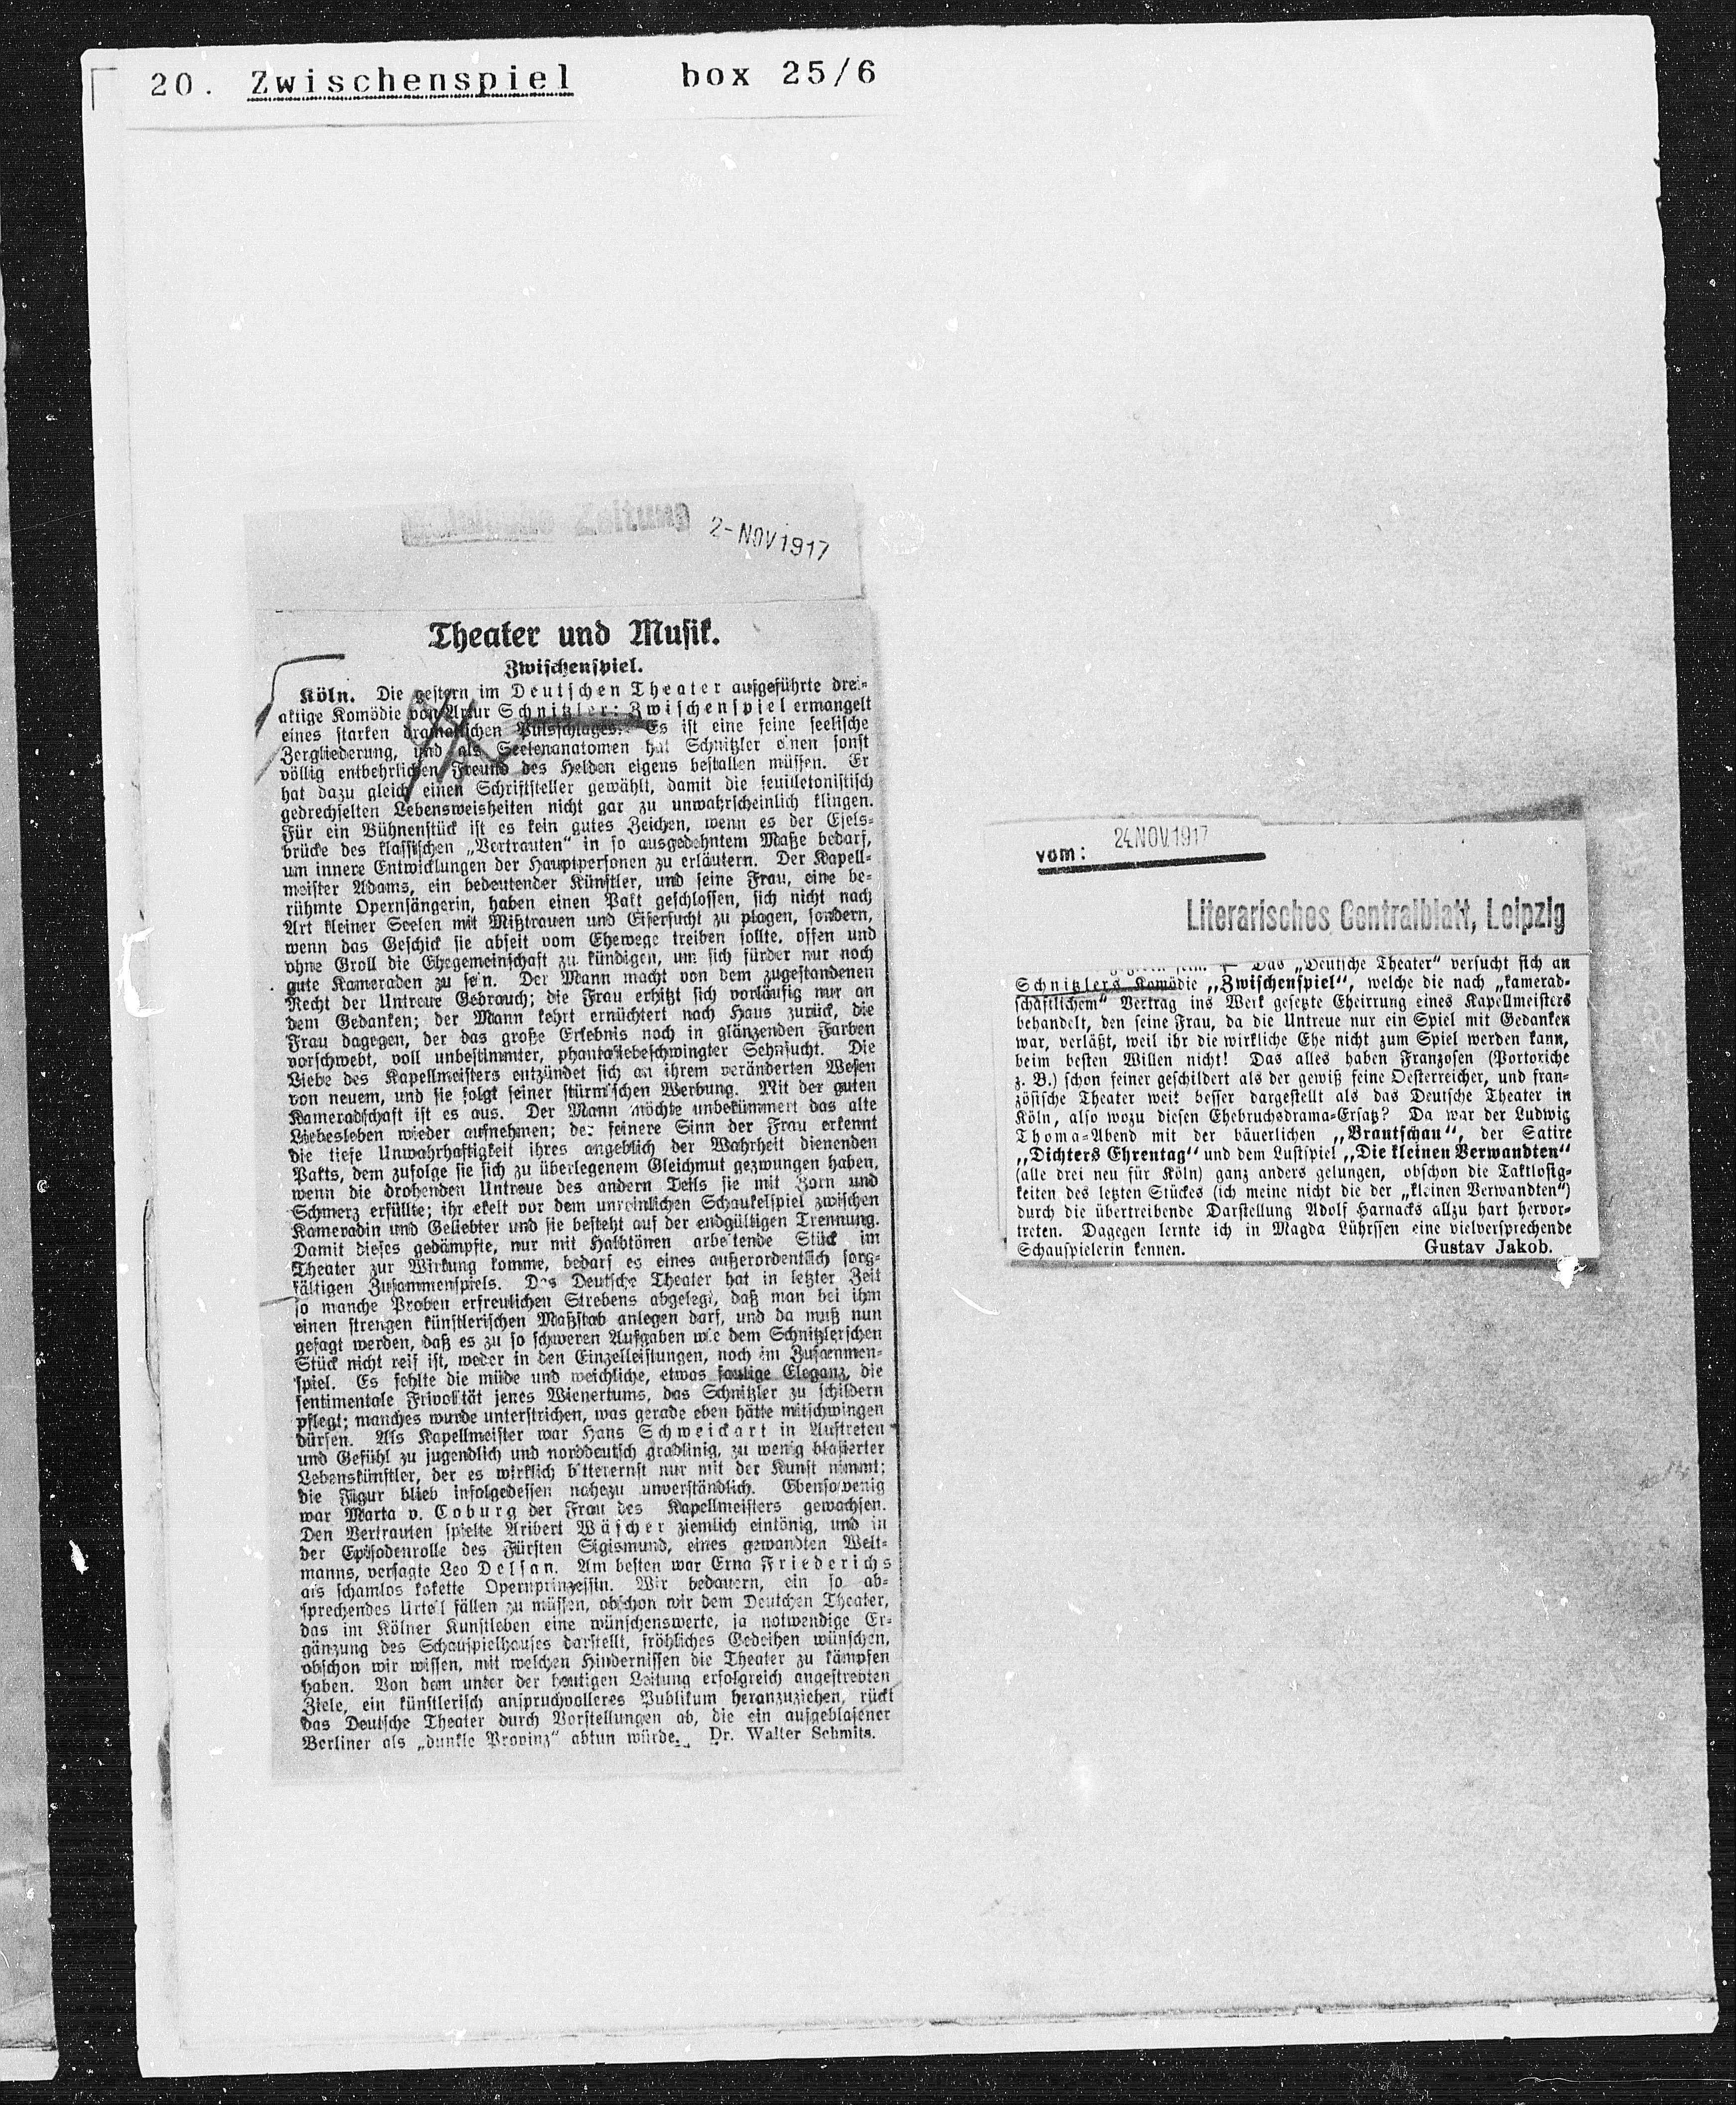 20. Zwischenspiel box 25/6
Zeitung 2-NOV 1917
Theater und Musik.
Zwischenspiel.
Köln. Die gestern im Deutschen Theater aufgeführte drei-
aktige Komödie von Artur Schnitzler: Zwischenspiel ermangelt
eines starken dramatischen Pulsschlages. Es ist eine feine seelische
Zergliederung, und als Seelenanatomen hat Schnitzler einen sonst
völlig entbehrlichen Freund des Helden eigens bestallen müssen. Er
hat dazu gleich einen Schriftsteller gewählt, damit die feuilletonistisch
gedrechselten Lebensweisheiten nicht gar zu unwahrscheinlich klingen.
Für ein Bühnenstück ist es kein gutes Zeichen, wenn es der Esels-
brücke des klassischen „Vertrauten“ in so ausgedehntem Maße bedarf,
um innere Entwicklungen der Hauptpersonen zu erläutern. Der Kapell-
meister Adams, ein bedeutender Künstler, und seine Frau, eine be-
rühmte Opernsängerin, haben einen Pakt geschlossen, sich nicht nach
Art kleiner Seelen mit Mißtrauen und Eifersucht zu plagen, sondern,
wenn das Geschick sie abseit vom Ehewege treiben sollte, offen und
ohne Groll die Ehegemeinschaft zu kündigen, um sich fürder nur noch
gute Kameraden zu sein. Der Mann macht von dem zugestandenen
Recht der Untreue Gebrauch; die Frau erhitzt sich vorläufig nur an
dem Gedanken; der Mann kehrt ernüchtert nach Haus zurück, die
Frau dagegen, der das große Erlebnis noch in glänzenden Farben
vorschwebt, voll unbestimmter, phantasiebeschwingter Sehnsucht. Die
Liebe des Kapellmeisters entzündet sich an ihrem veränderten Wesen
von neuem, und sie folgt seiner stürmischen Werbung. Mit der guten
Kameradschaft ist es aus. Der Mann möchte unbekümmert das alte
Liebesleben wieder aufnehmen; der feinere Sinn der Frau erkennt
die tiefe Unwahrhaftigkeit ihres angeblich der Wahrheit dienenden
Pakts, dem zufolge sie sich zu überlegenem Gleichmut gezwungen haben,
wenn die drohenden Untreue des andern Teils sie mit Zorn und
Schmerz erfüllte; ihr ekelt vor dem unreinlichen Schaukelspiel zwischen
Kameradin und Geliebter und sie besteht auf der endgültigen Trennung.
Damit dieses gedämpfte, nur mit Halbtönen arbeitende Stück im
Theater zur Wirkung komme, bedarf es eines außerordentlich sorg-
fältigen Zusammenspiels. Das Deutsche Theater hat in letzter Zeit
so manche Proben erfreulichen Strebens abgelegt, daß man bei ihm
einen strengen künstlerischen Maßstab anlegen darf, und da muß nun
gesagt werden, daß es zu so schweren Aufgaben wie dem Schnitzlerschen
Stück nicht reif ist, weder in den Einzelleistungen, noch im Zusammen-
spiel. Es fehlte die müde und weichliche, etwas faulige Eleganz, die
sentimentale Frivolität jenes Wienertums, das Schnitzler zu schildern
pflegt; manches wurde unterstrichen, was gerade eben hätte mitschwingen
dürfen. Als Kapellmeister war Hans Schweickart in Auftreten
und Gefühl zu jugendlich und norddeutsch gradlinig, zu wenig blasierter
Lebenskünstler, der es wirklich bitterernst nur mit der Kunst nimmt;
die Figur blieb infolgedessen nahezu unverständlich. Ebensowenig
war Marta v. Coburg der Frau des Kapellmeisters gewachsen.
Den Vertrauten spielte Aribert Wäscher ziemlich eintönig, und in
der Episodenrolle des Fürsten Sigismund, eines gewandten Welt-
manns, versagte Leo Delsan. Am besten war Erna Friederichs
als schamlos kokette Opernprinzessin. Wir bedauern, ein so ab-
sprechendes Urteil fällen zu müssen, obschon wir dem Deutschen Theater,
das im Kölner Kunstleben eine wünschenswerte, ja notwendige Er-
gänzung des Schauspielhauses darstellt, fröhliches Gedeihen wünschen,
obschon wir wissen, mit welchen Hindernissen die Theater zu kämpfen
haben. Von dem unter der heutigen Leitung erfolgreich angestrebten
Ziele, ein künstlerisch anspruchvolleres Publikum heranzuziehen, rückt
das Deutsche Theater durch Vorstellungen ab, die ein aufgeblasener
Berliner als „dunkle Provinz“ abtun würde. Dr. Walter Schmits.
vom: 24 NOV. 1917
Literarisches Centralblatt, Leipzig
— Das „Deutsche Theater“ versucht sich an
Schnitzlers Komödie „Zwischenspiel“, welche die nach „kamerad-
schaftlichem“ Vertrag ins Werk gesetzte Eheirrung eines Kapellmeisters
behandelt, den seine Frau, da die Untreue nur ein Spiel mit Gedanken
war, verläßt, weil ihr die wirkliche Ehe nicht zum Spiel werden kann,
beim besten Willen nicht! Das alles haben Franzosen (Portoriche
z. B.) schon feiner geschildert als der gewiß feine Oesterreicher, und fran-
zösische Theater weit besser dargestellt als das Deutsche Theater in
Köln, also wozu diesen Ehebruchsdrama-Ersatz? Da war der Ludwig
Thoma-Abend mit der bäuerlichen „Brautschau“, der Satire
„Dichters Ehrentag“ und dem Lustspiel „Die kleinen Verwandten“
(alle drei neu für Köln) ganz anders gelungen, obschon die Taktlosig-
keiten des letzten Stückes (ich meine nicht die der „kleinen Verwandten“)
durch die übertreibende Darstellung Adolf Harnacks allzu hart hervor-
treten. Dagegen lernte ich in Magda Lührssen eine vielversprechende
Schauspielerin kennen. Gustav Jakob.